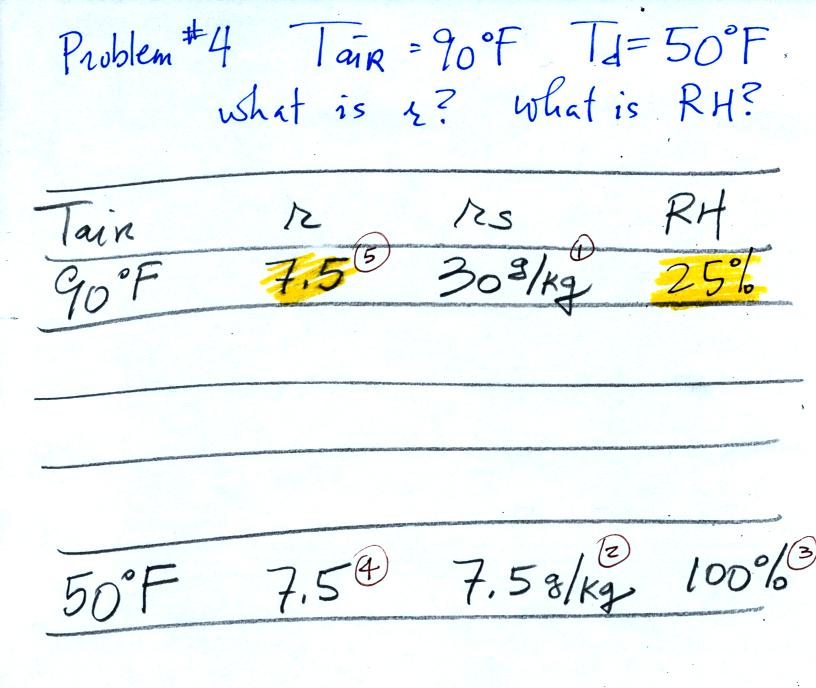 Problem #4 Tair = 90°F Td = 50°F
what is r? what is RH?
Tair r rs RH
90°F 7.5 ⑤ 30 g/kg ① 25%
50°F 7.5 ④ 7.5 g/kg ② 100% ③